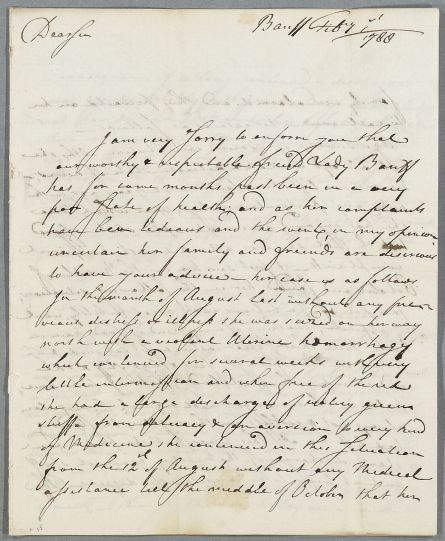 Banff Feby 1st
1788
Dear Sir
I am very Sorry to enform you that
our worthy & respectable freind Lady Banff
has for some months past been in a very
poor State of health, and as her complaints
have been tedious and the event, in my opinion
uncertain her family and freinds are desirous
to have your advice - her case is as follows
In the month of August last without any pre-
vious distress or illness she was seized on her way
north with a violent Uterine hemorrhagy
which contenued for several weeks with very
little intermission and when free of the red
she had a large discharge of watry green
stuff from delicacy & an aversion to every kind
of Medicine she contenued in this Situation
from the 12th of August without any Medical
assistance till the middle of October that her